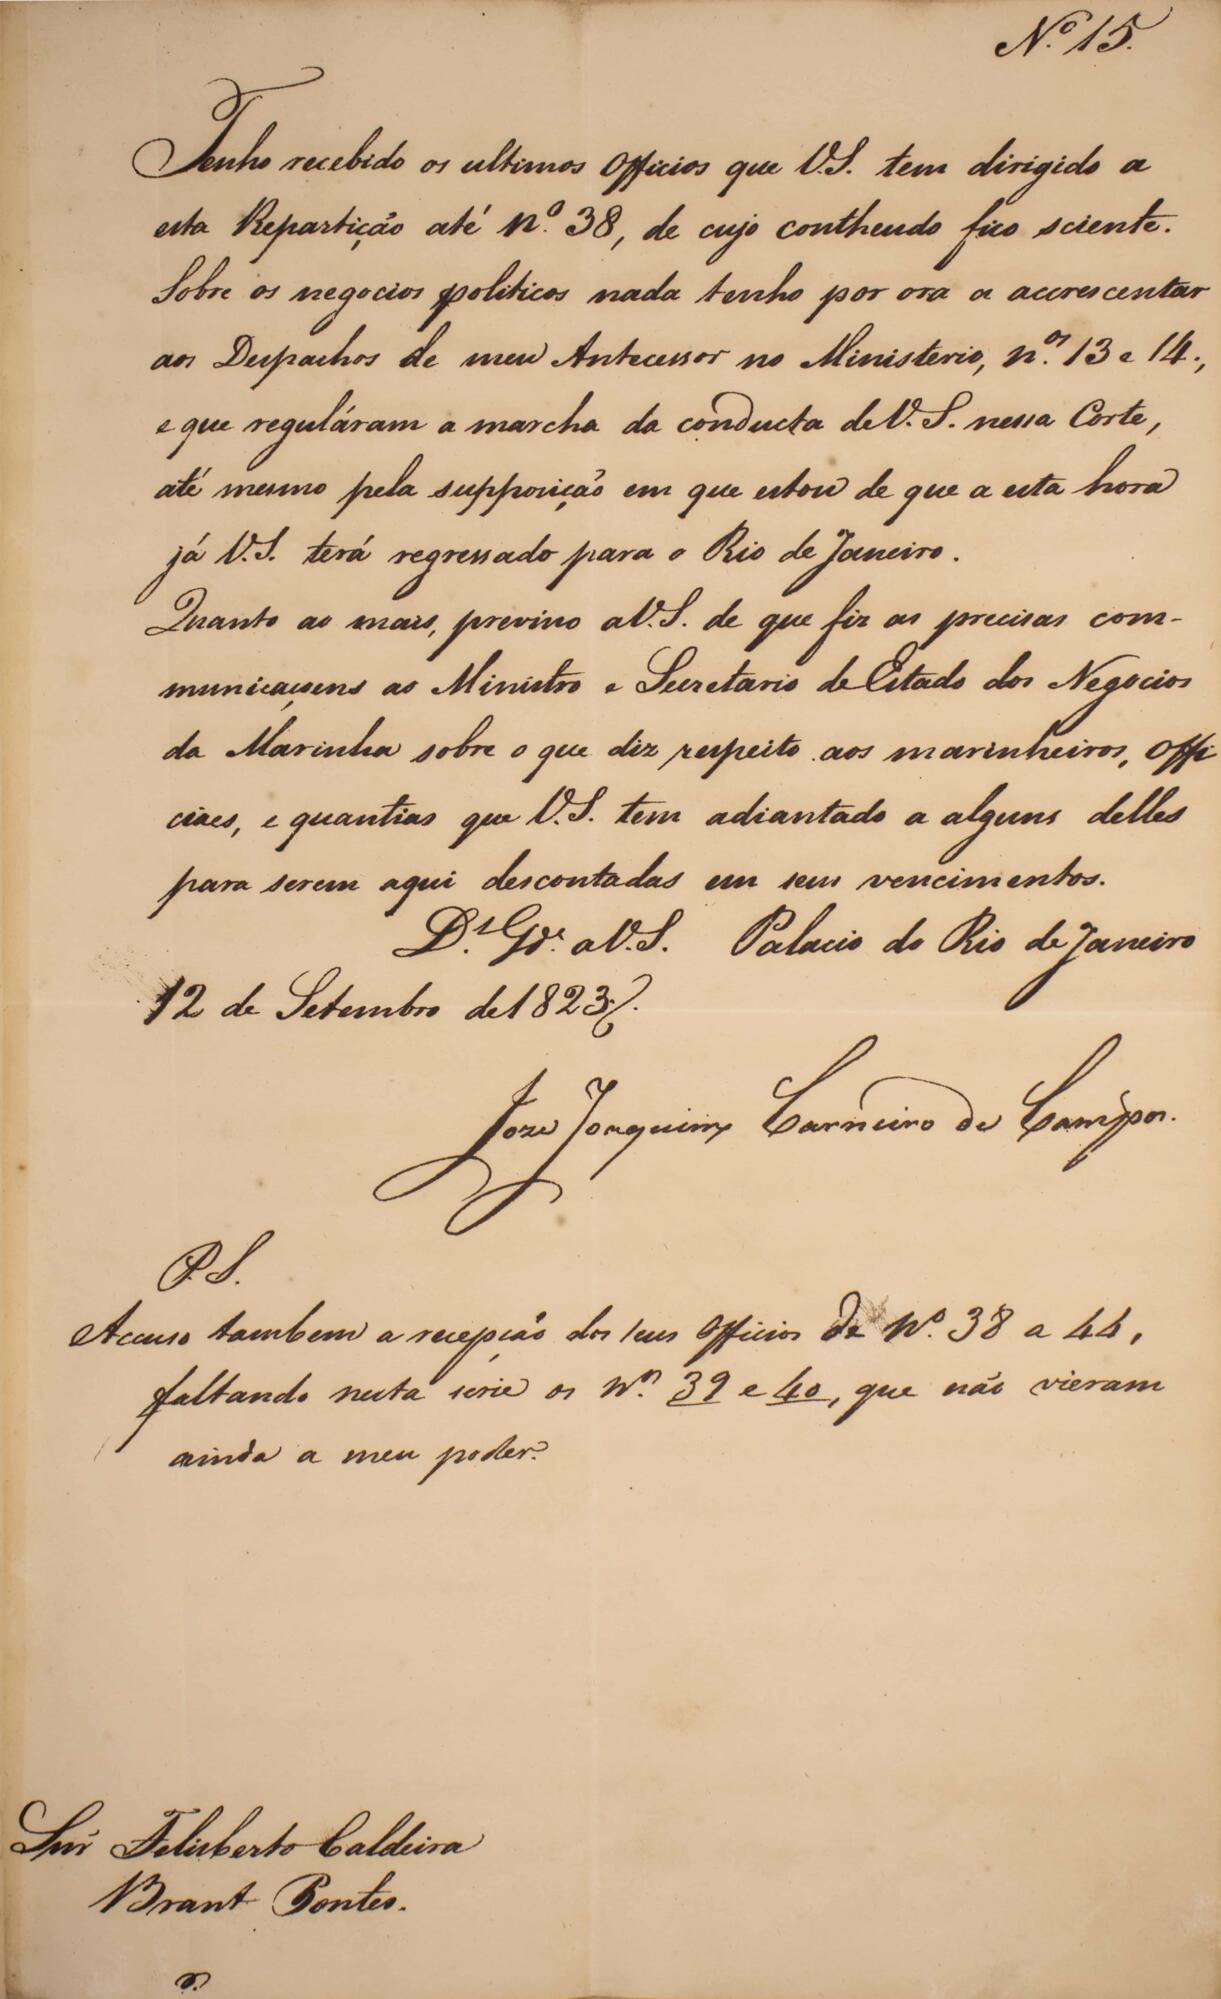 Nº 15.
Tenho recebido os ultimos Officios que V.S. tem dirigido a
esta Repartição até nº. 38, de cujo contheudo fico sciente.
Sobre os negocios politicos nada tenho por ora a accrescentar
aos Despachos de meu Antecessor no Ministerio, nºs 13 e 14.,
e que reguláram a marcha da conducta de V.S. nessa Corte,
até mesmo pela supposição em que estou de que a esta hora
já V.S. terá regressado para o Rio de Janeiro.
Quanto ao mais, previno a V.S. de que fiz as precisas com-
municaçoens ao Ministro e Secretario de Estado dos Negocios
da Marinha sobre o que diz respeito aos marinheiros, Offi
ciaes, e quantias que V.S. tem adiantado a alguns delles
para serem aqui descontadas em seus vencimentos.
Ds. Gde. a V.S. Palacio do Rio de Janeiro
12 de Setembro de 1823.
Joze Joaquim Carneiro de Campos.
P.S.
Accuso tambem a recepção dos seus Officios de Nº. 38 a 44,
faltando nesta serie os Nos 39 e 40, que não vieram
ainda a meu poder.
Snr Felisberto Caldeira
Brant Pontes.